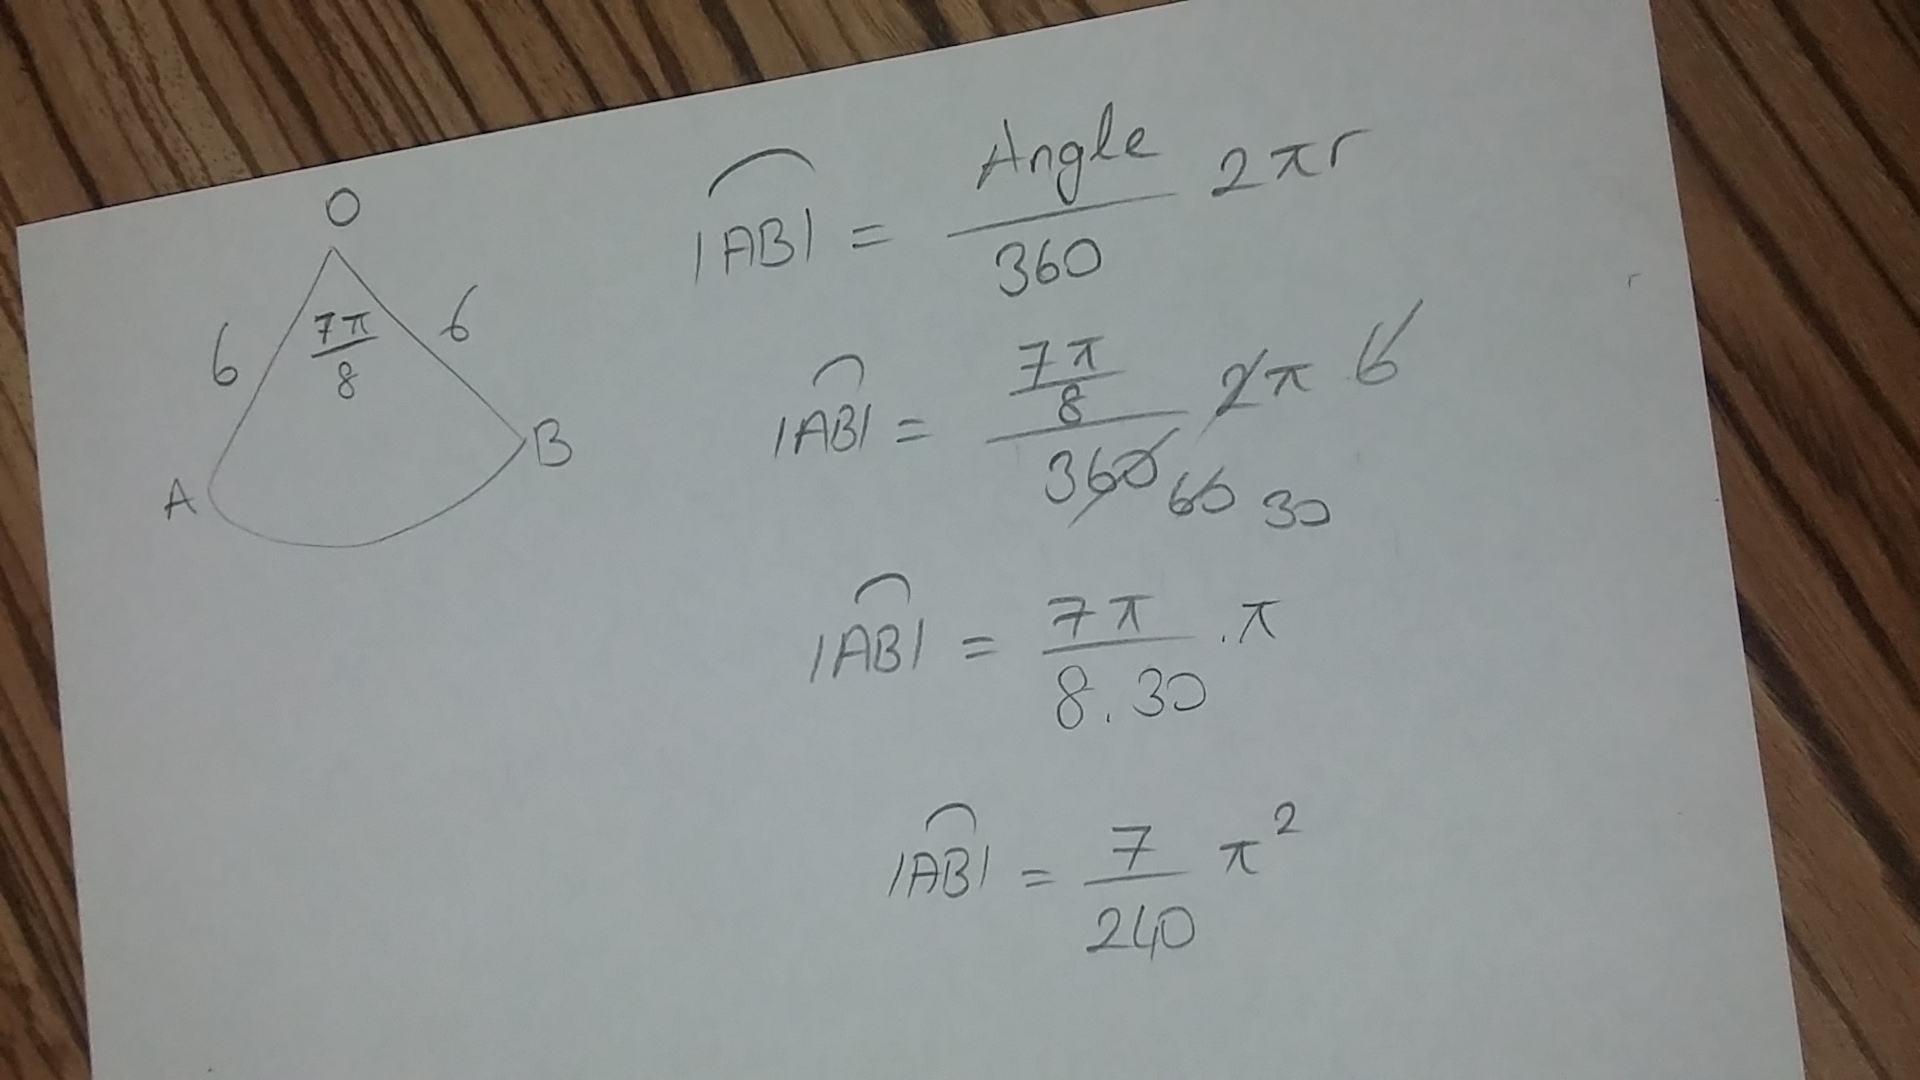 O
6 7π/8 6
A B
|AB| = Angle/360 2πr
|AB| = (7π/8)/360 2π 6
60 30
|AB| = 7π/8.30 .π
|AB| = 7/240 π²